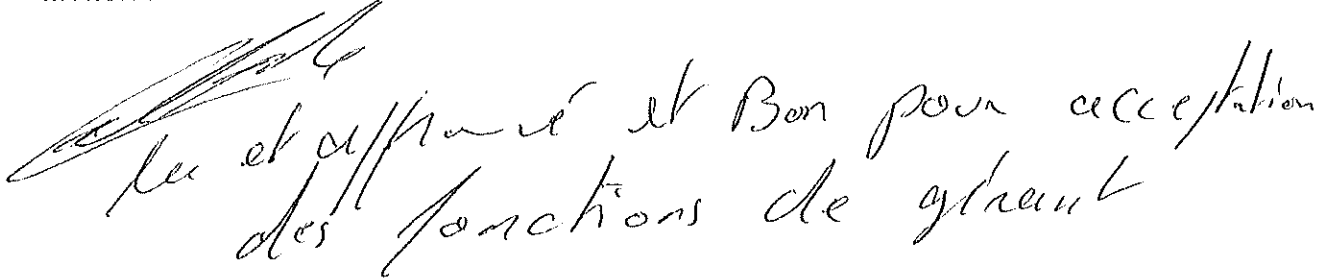 lu et approuvé et Bon pour acceptation
des fonctions de gérant